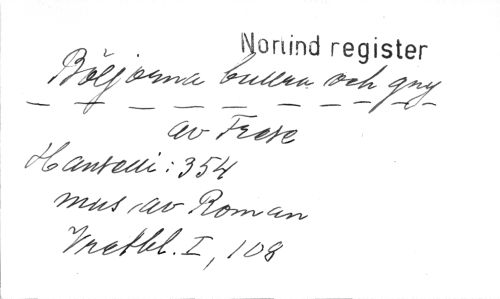 Norlind register
Böljorna bullra och gny
av Frese
Hanselli: 354
mus av Roman
Vretbl. I, 108